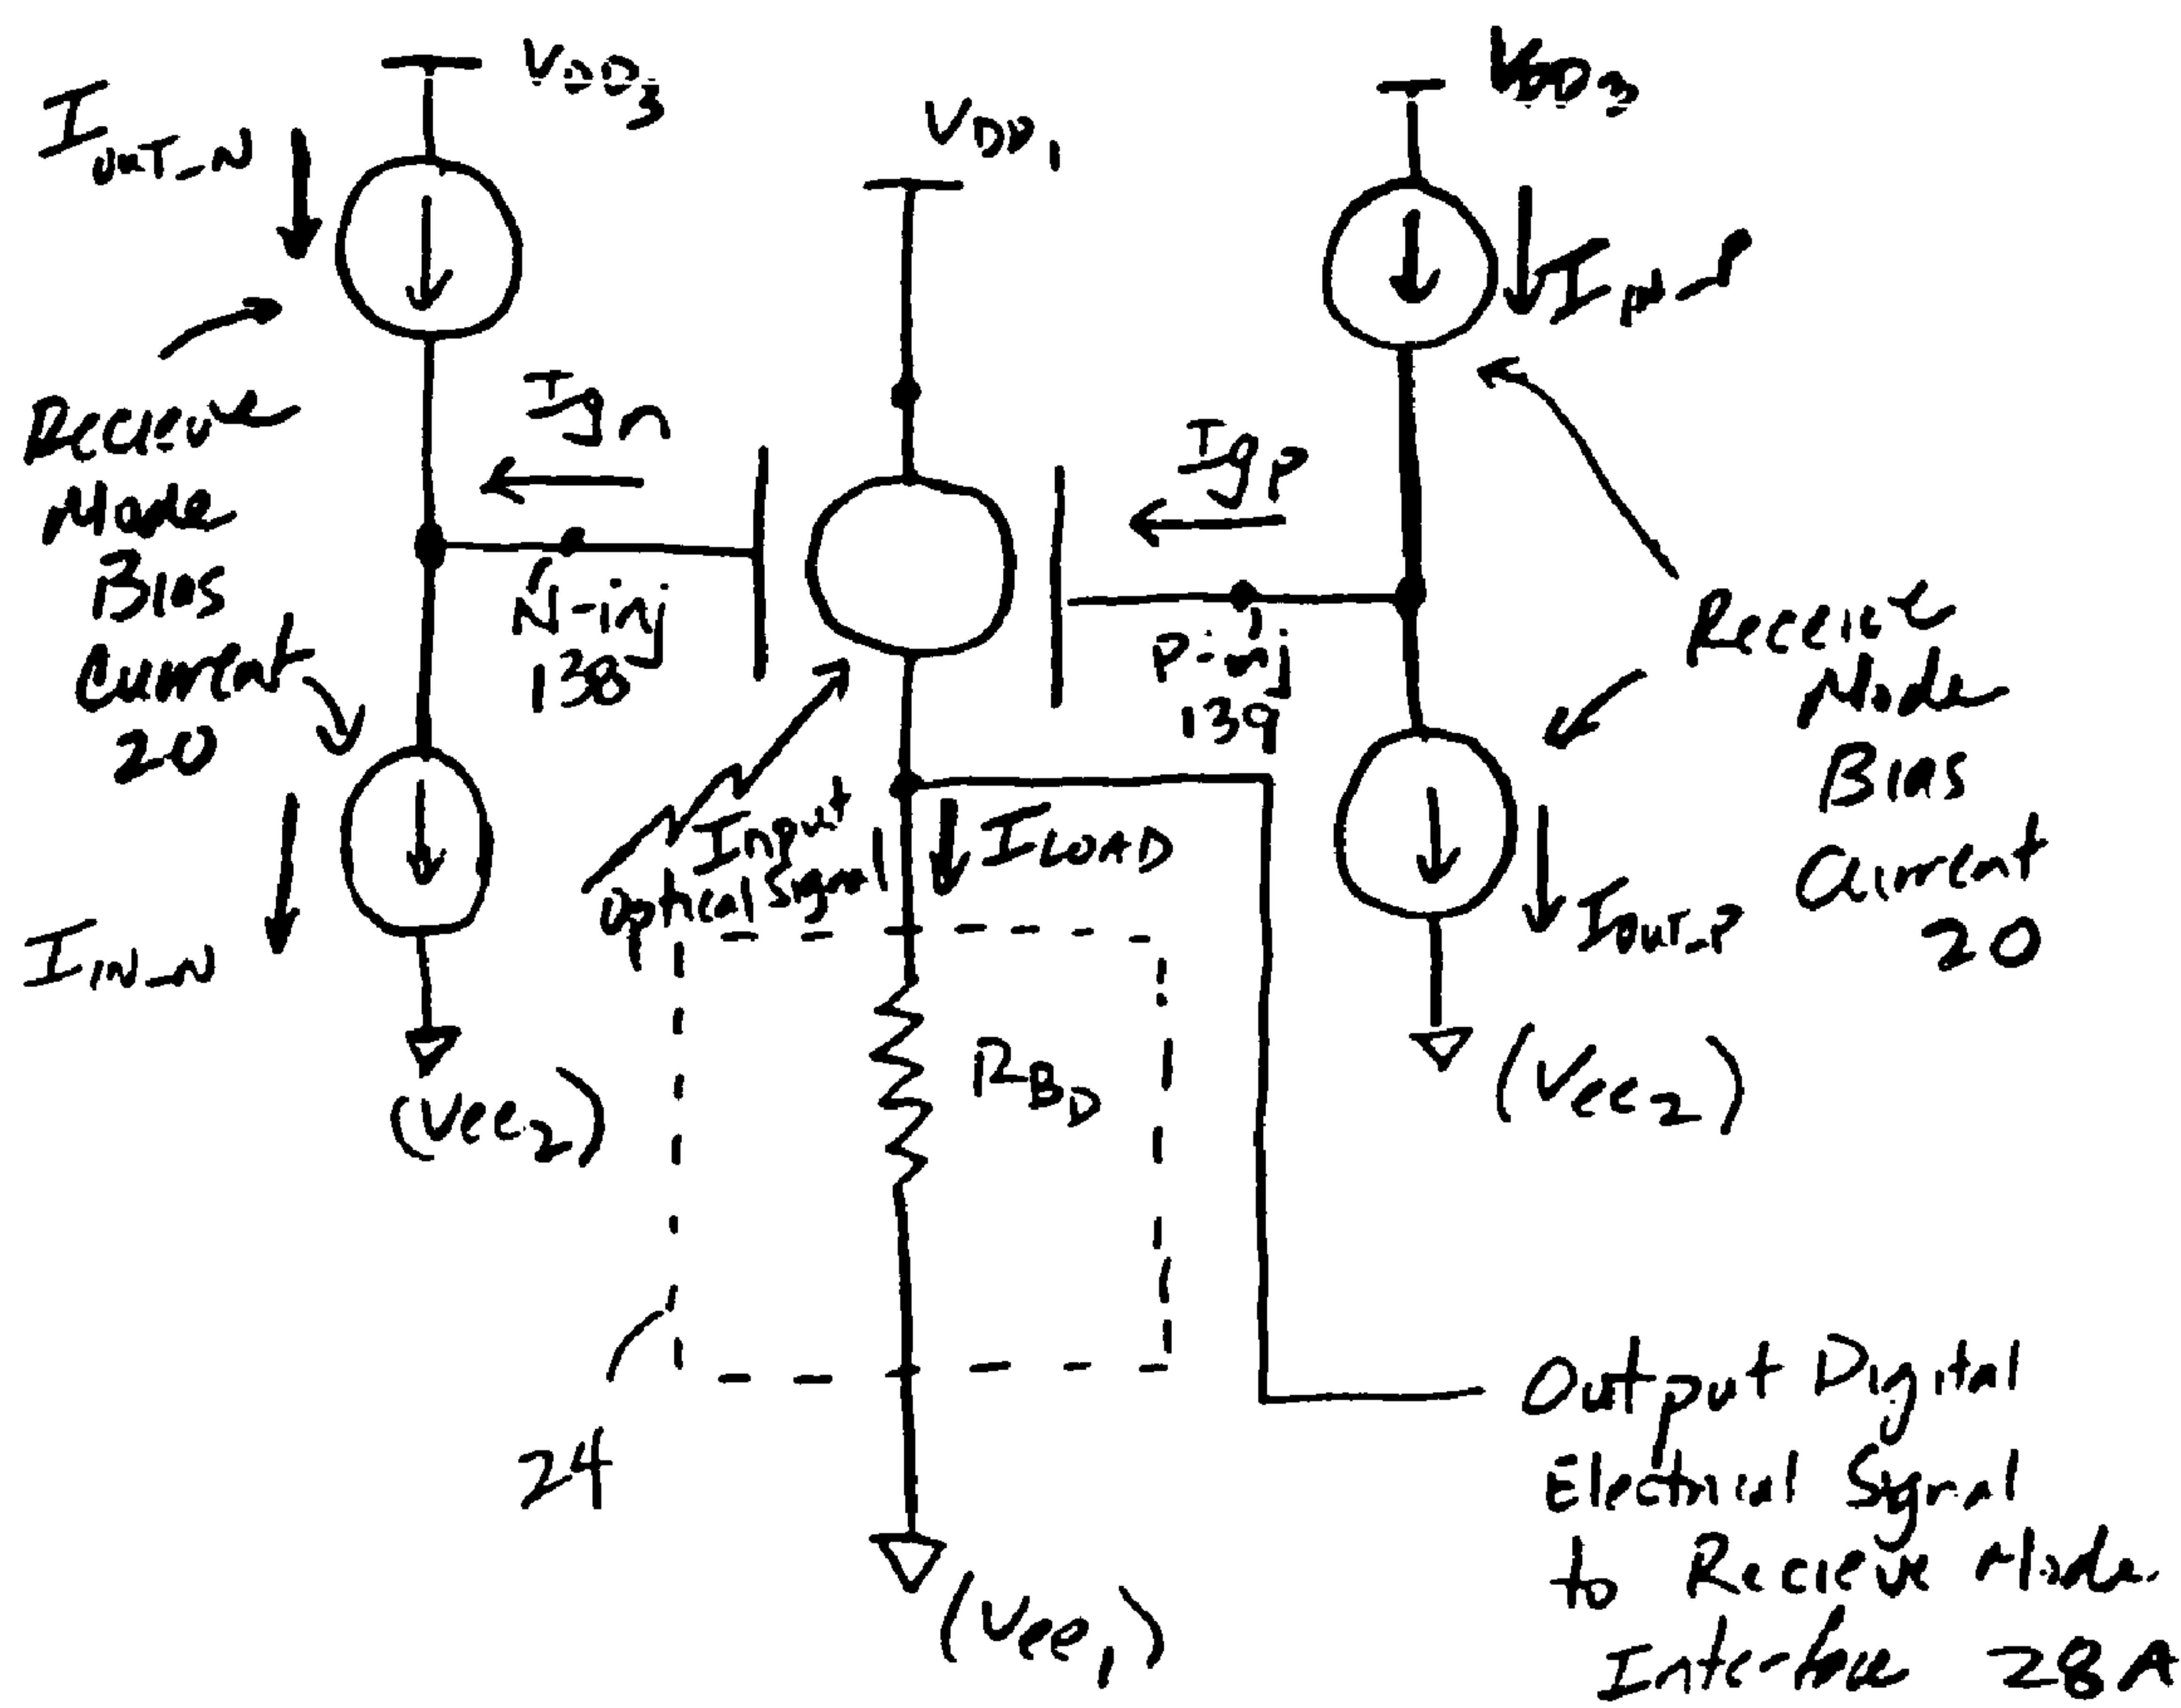 VDD3
IOUT_N
VDD1
VDD3
IIN_P
Ign
Igp
Recieve
Mode
Bias
Current
20
N-inj
138
P-inj
139
Receive
Mode
Bias
Current
20
Input
Optical Signal
ILOAD
IIN_N
IOUT_P
(Vee2)
RBD
(Vee2)
24
Output Digital
Electrical Signal
to Recieve Mode
Interface 28A
(Vee1)